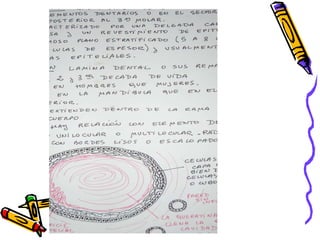 EMENTOS DENTARIOS O EN EL SECTOR
POSTERIOR AL 3º MOLAR.
ACTERIZADO POR UNA DELGADA CAP
SA y UN REVESTIMIENTO DE EPIT
OSO PLANO ESTRATIFICADO (5 A 8
LULAS DE ESPESOR) y USUALMENT
AS EPITELIALES.
LAMINA DENTAL O SUS REM
2 y 3 DECADA DE VIDA
EN HOMBRES QUE MUJERES.
EN LA MANDIBULA QUE EN EL
ERIOR.
EXTIENDEN DENTRO DE LA RAMA
CUERPO
HAY RELACIÓN CON ELEMENTO DE
UNILOCULAR O MULTILOCULAR. RAD
CON BORDES LISOS O ESCALOPADO
CELULAS
CAPA
BIEN
CELULAS
O CUBO
PARED
LA QUERATINA
LLENA LA
CAVIDAD